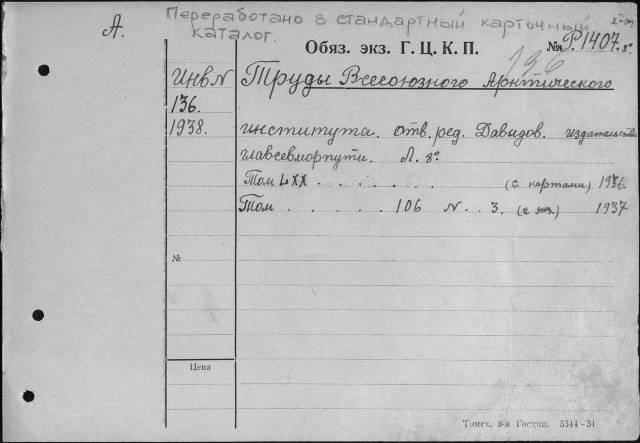 Переработано в стандартный карточный
каталог.
А.
2-эк
Обяз. экз. Г. Ц. К. П.
№ Р.1407. 8°
196
Инв N
136.
1938.
Труды Всесоюзного Арктического
института. отв. ред. Давыдов. издательство
главсевморпути. Л. 8°
Том LXX . . . . . (с картами) 1936
Том . . . . . 106 N. 3. (2 экз.) 1937
№
Цена
Томск, 3-я Гостип. 5344—31